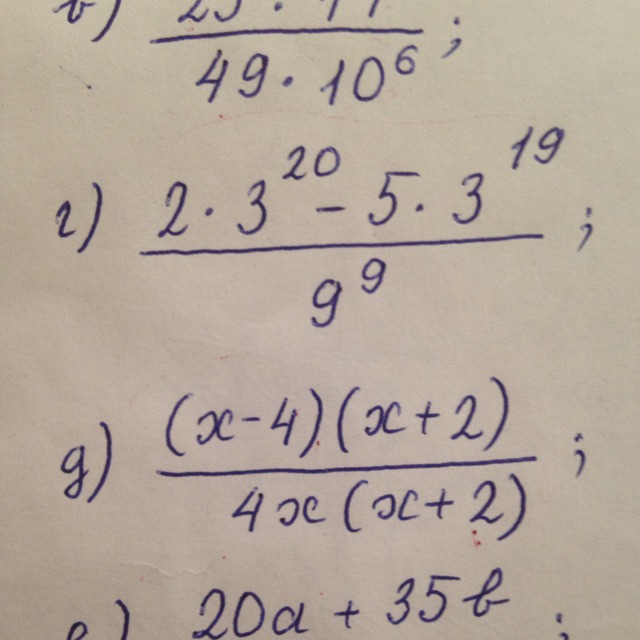 в)
49 · 10⁶ ;
г) 2 · 3²⁰ − 5 · 3¹⁹ ;
9⁹
д) (x−4)(x+2) ;
4x(x+2)
е) 20a + 35b ;